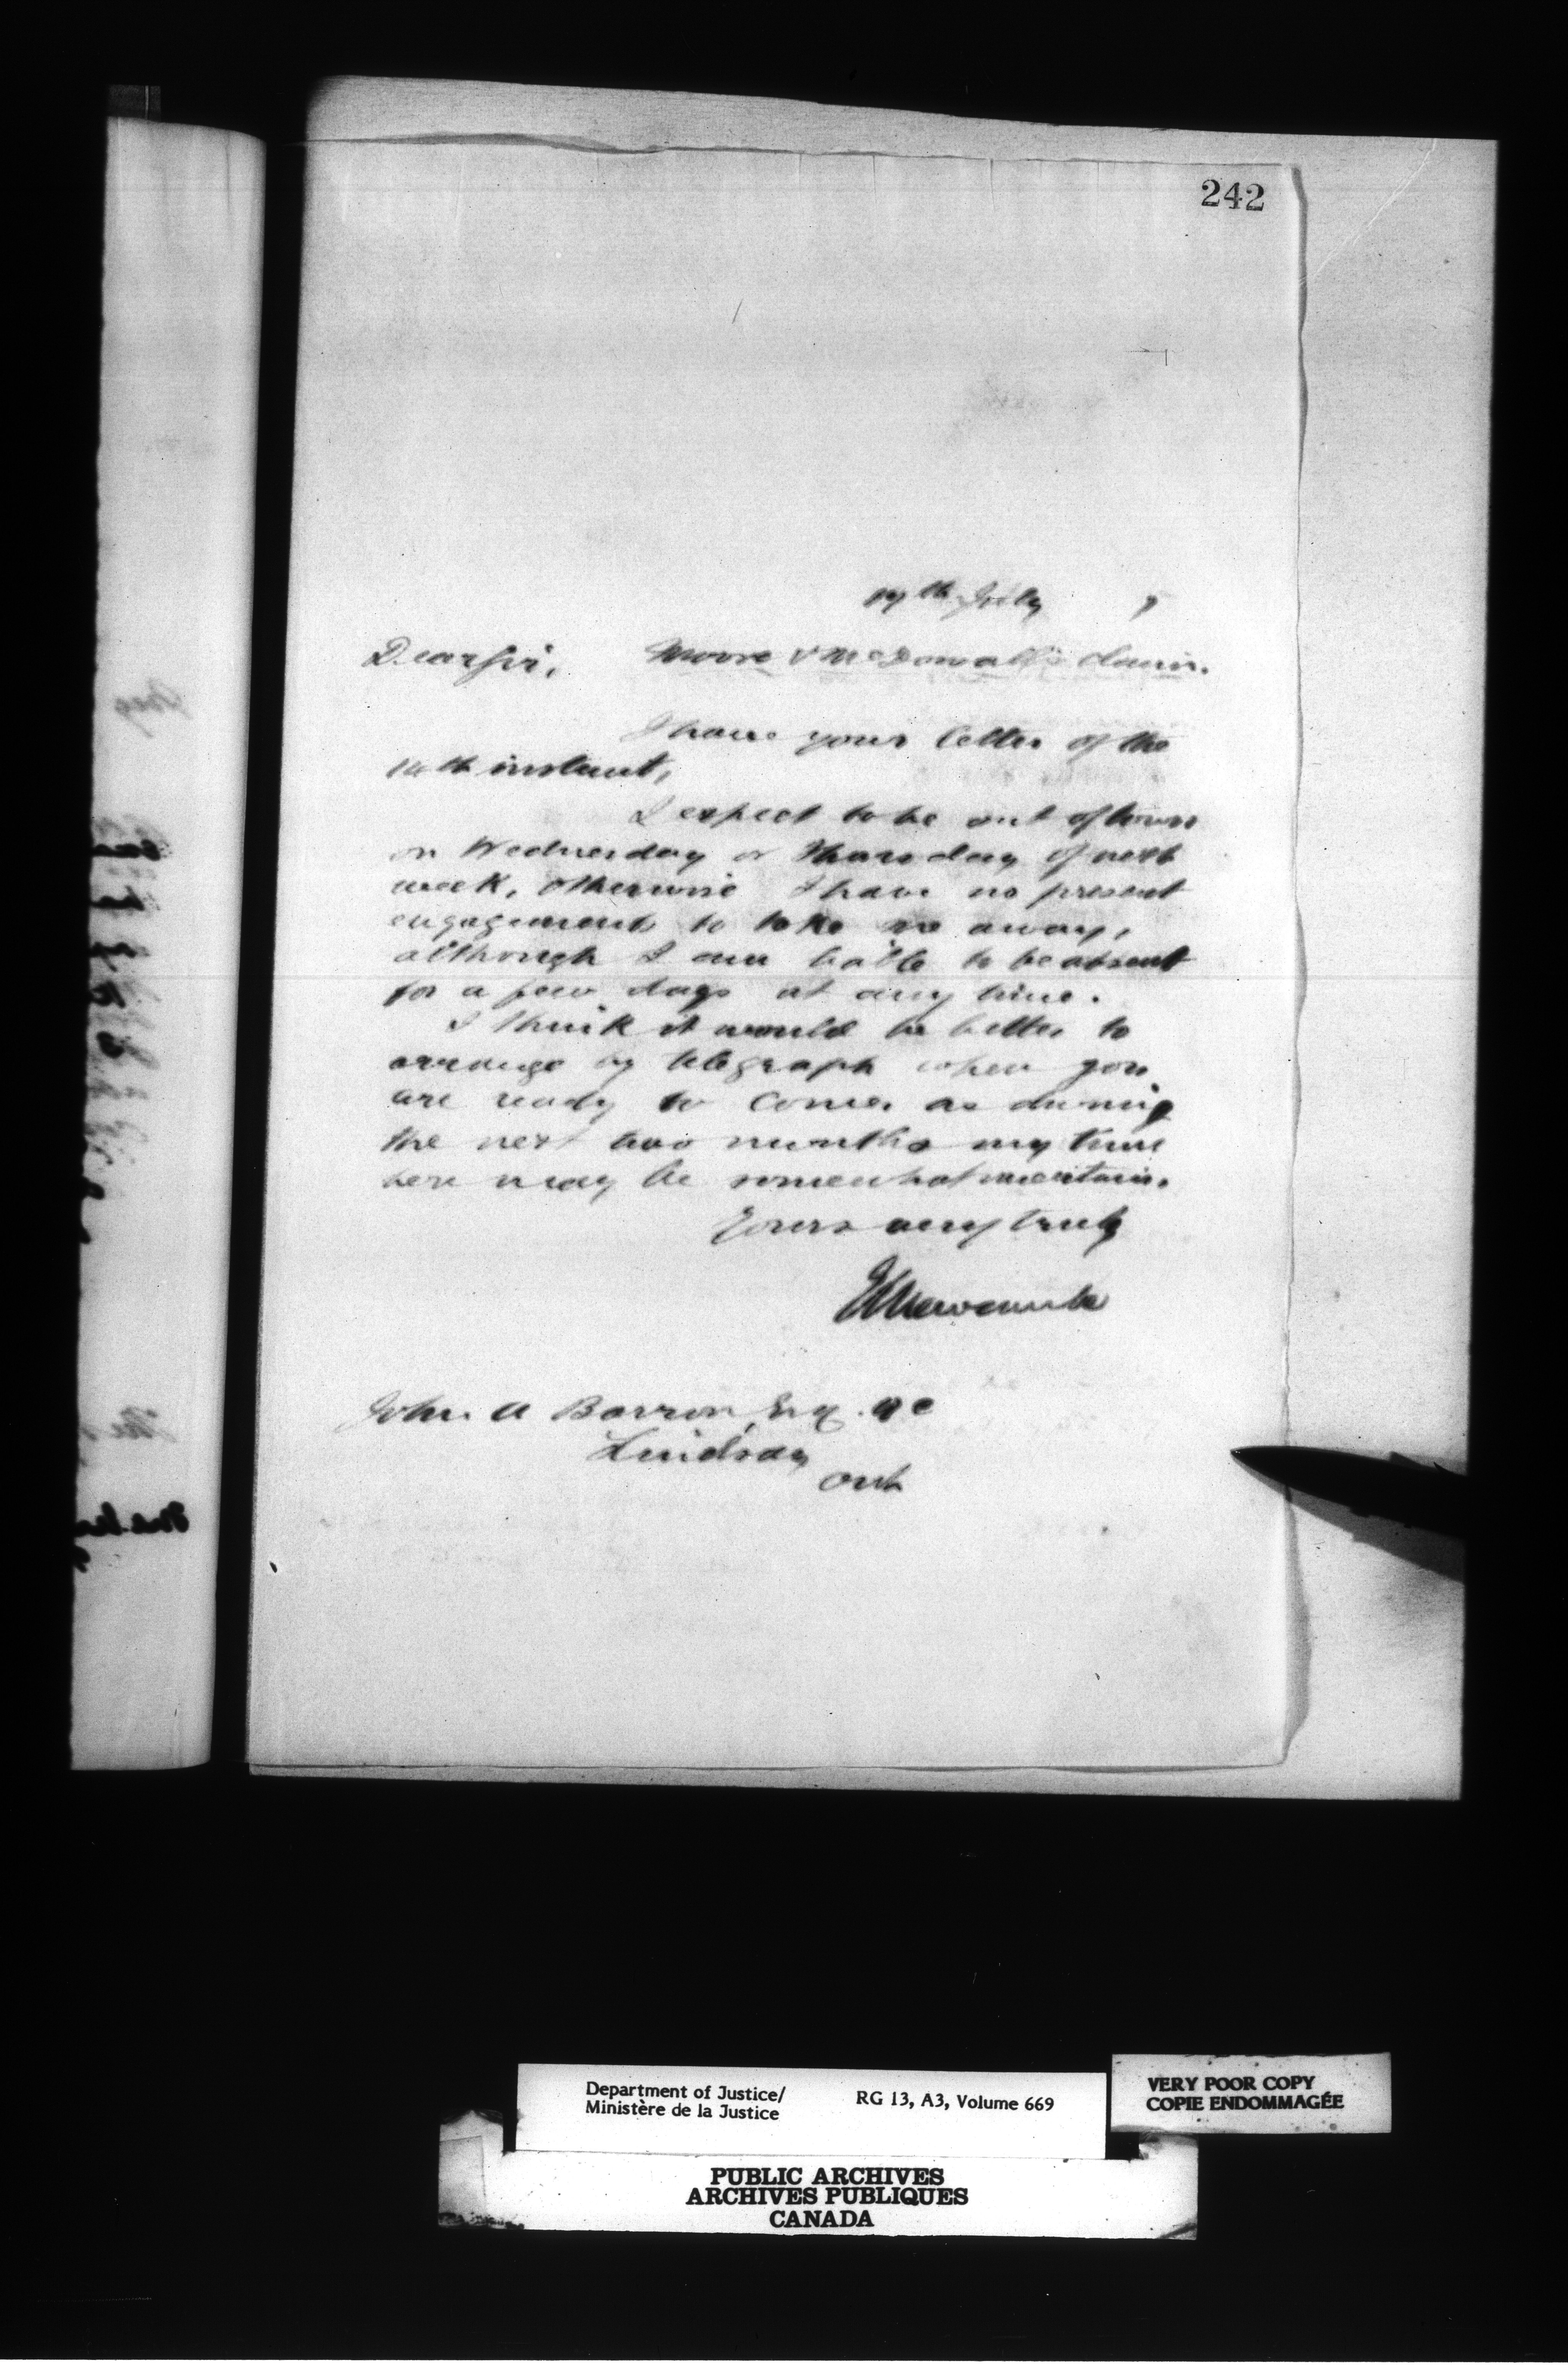 242
th July 7
Dear Sir, Moore & McDowall's claim.
I have your letter of the
14th instant,
I expect to be out of town
on Wednesday or Thursday of next
week, otherwise I have no present
engagement to take me away,
although I am liable to be absent
for a few days at any time.
I think it would be better to
arrange by telegraph when you
are ready to come, as during
the next two months my time
here may be somewhat uncertain.
Yours very truly
ELNewcombe
John A Barron, Esq. QC
Lindsay
Ont
Department of Justice/
Ministère de la Justice
RG 13, A3, Volume 669
VERY POOR COPY
COPIE ENDOMMAGÉE
PUBLIC ARCHIVES
ARCHIVES PUBLIQUES
CANADA